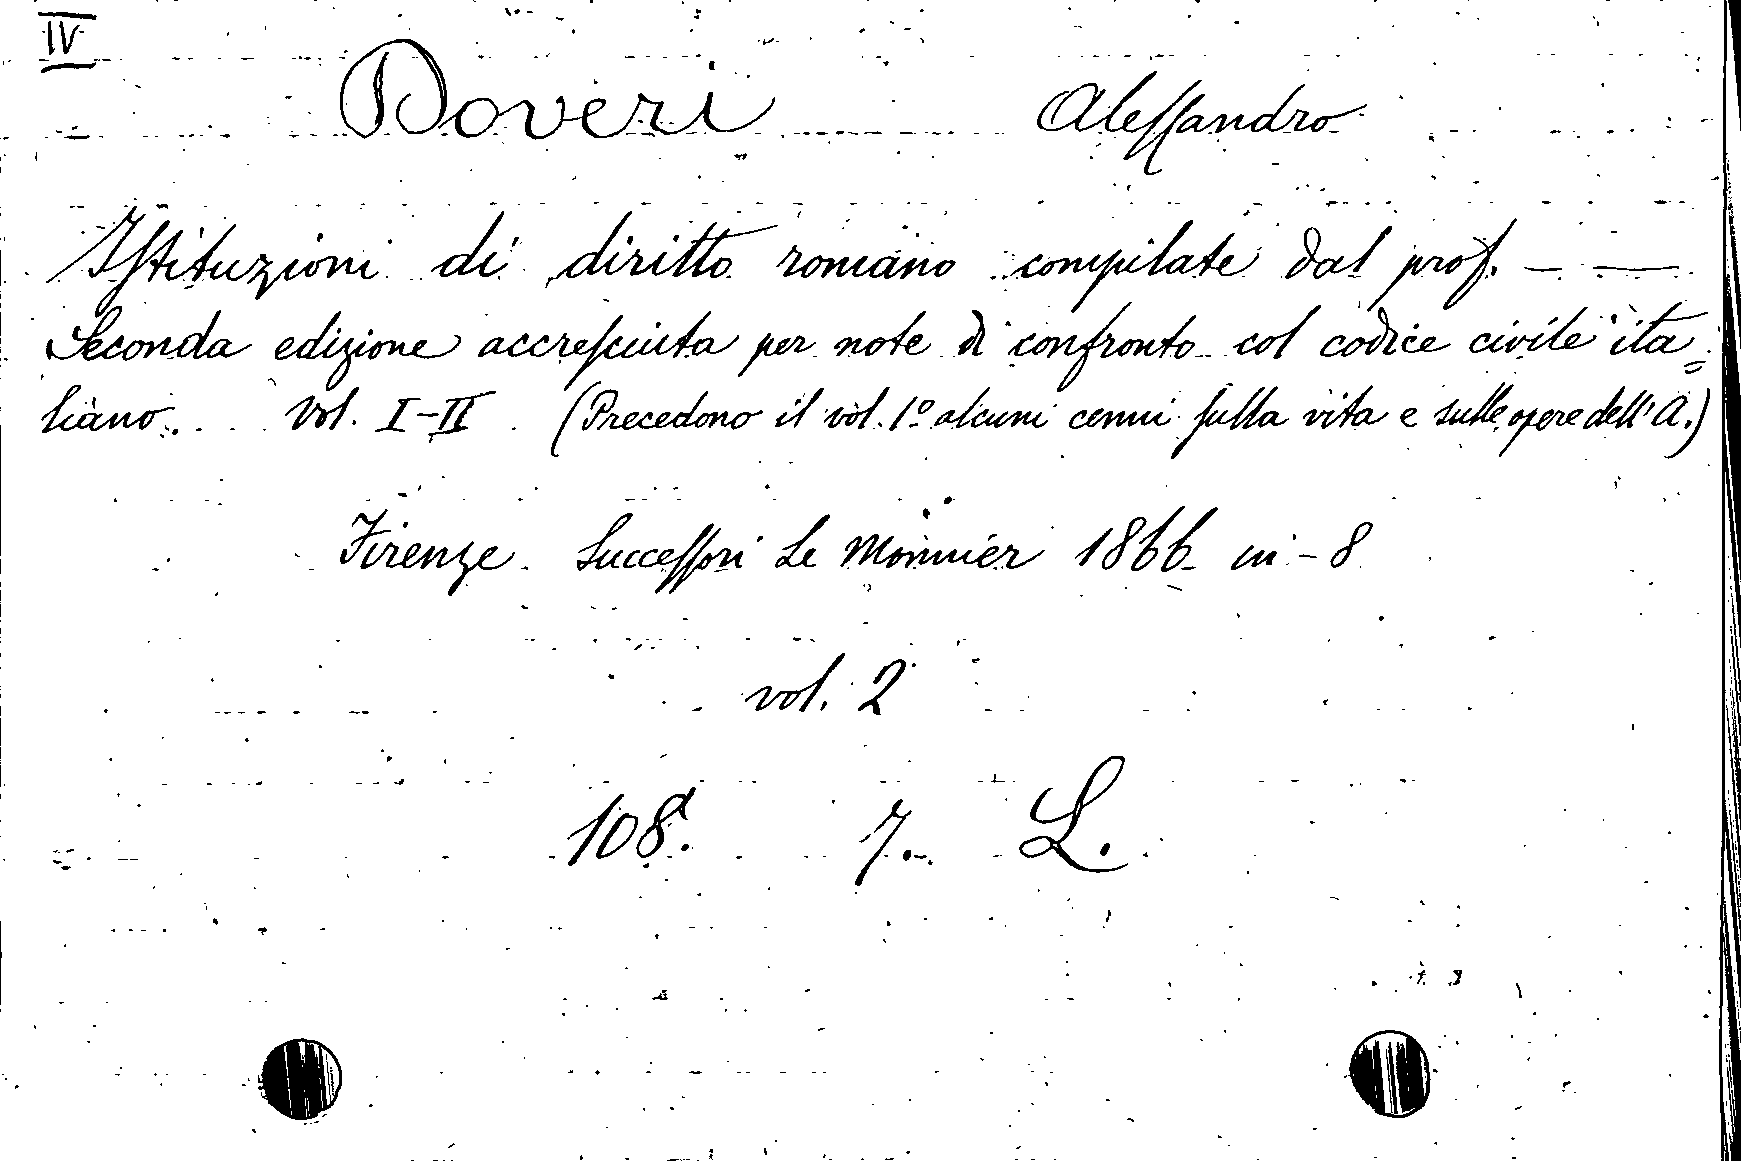 IV
Doveri Alessandro
Istituzioni di diritto romano compilate dal prof. — —
Seconda edizione accresciuta per note di confronto col codice civile ita=
liano. Vol. I-II (Precedono il vol. 1º alcuni cenni sulla vita e sulle opere dell'A.)
Firenze. Successori Le Monnier 1866 in-8
vol. 2
108. 7. L.